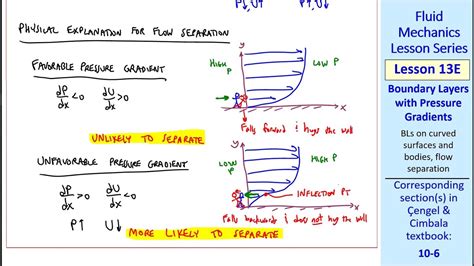 P↓, U↑
P↑, U↓
PHYSICAL EXPLANATION FOR FLOW SEPARATION
FAVORABLE PRESSURE GRADIENT
dP/dx < 0 dU/dx > 0
HIGH P
LOW P
y
x
Falls forward & hugs the wall
UNLIKELY TO SEPARATE
UNFAVORABLE PRESSURE GRADIENT
dP/dx > 0 dU/dx < 0
P↑ U↓
LOW P
HIGH P
y
x
INFLECTION PT
Falls backward & does not hug the wall
MORE LIKELY TO SEPARATE
Fluid
Mechanics
Lesson Series
Lesson 13E
Boundary Layers
with Pressure
Gradients
BLs on curved
surfaces and
bodies, flow
separation
Corresponding
section(s) in
Çengel &
Cimbala
textbook:
10-6